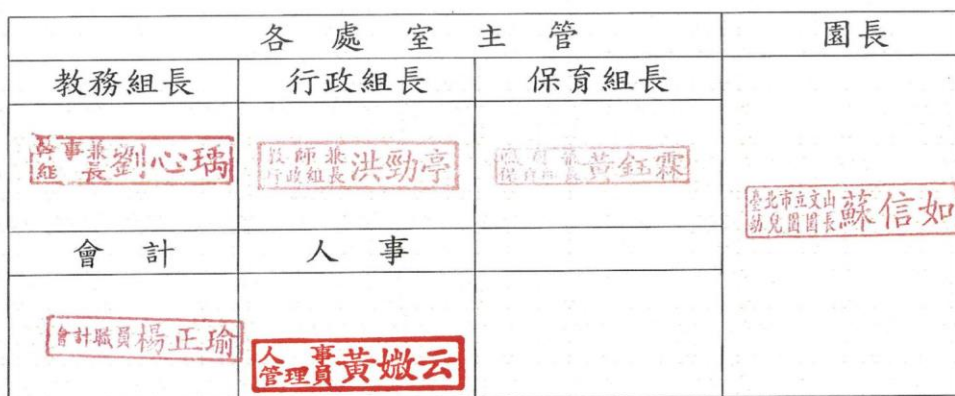 各處室主管 園長
教務組長 行政組長 保育組長
幹事兼組長 劉心瑀
教師兼行政組長 洪勁亭
黃鈺霖
臺北市立文山幼兒園園長 蘇信如
會計 人事
會計職員 楊正瑜
人事管理員 黃媺云